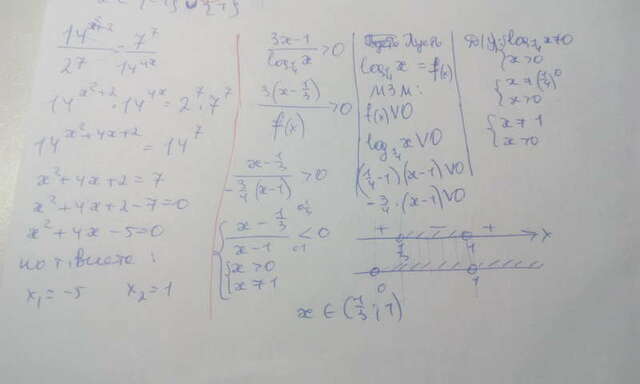 14^{x²+2}/2^7 = 7^7/14^{4x}
14^{x²+2} · 14^{4x} = 2^7 · 7^7
14^{x²+4x+2} = 14^7
x² + 4x + 2 = 7
x² + 4x + 2 - 7 = 0
x² + 4x - 5 = 0
по т. Виета:
x₁ = -5 x₂ = 1
3x-1/log_{1/4} x > 0
3(x-1/3)/f(x) > 0
x-1/3/-3/4(x-1) > 0
{ x-1/3/x-1 < 0
x > 0
x ≠ 1
Пусть
log_{1/4} x = f(x)
МЗМ:
f(x) V 0
log_{1/4} x V 0
(1/4-1)(x-1) V 0
-3/4·(x-1) V 0
ОДЗ: { log_{1/4} x ≠ 0
x > 0
{ x ≠ (1/4)^0
x > 0
{ x ≠ 1
x > 0
+ - + x
1/3 1
0 1
x ∈ (1/3; 1)